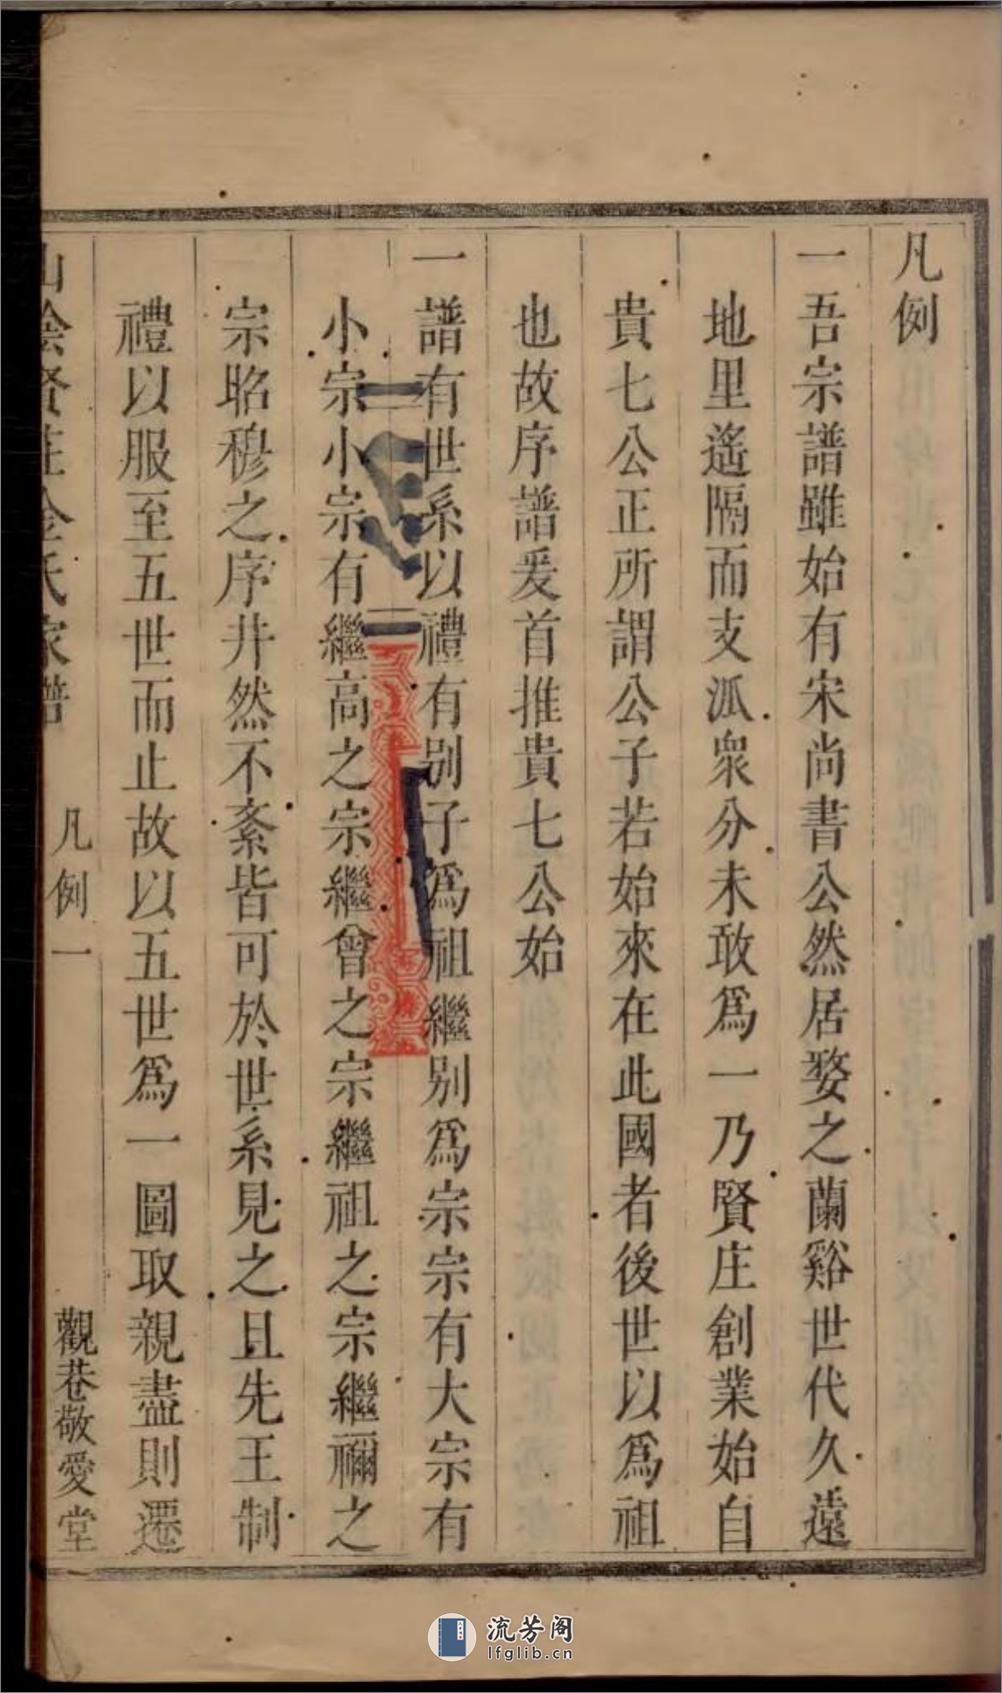 凡例
一吾宗譜雖始有宋尚書公然居婺之蘭谿世代久遠
地里遙隔而支派衆分未敢爲一乃賢庄創業始自
貴七公正所謂公子若始來在此國者後世以爲祖
也故序譜爰首推貴七公始
一譜有世系以禮有别子爲祖繼别爲宗宗有大宗有
小宗小宗有繼高之宗繼曾之宗繼祖之宗繼禰之
宗昭穆之序井然不紊皆可於世系見之且先王制
禮以服至五世而止故以五世爲一圖取親盡則遷
山陰賢庄金氏家譜 凡例 一 觀巷敬愛堂
流芳阁
lfglib.cn